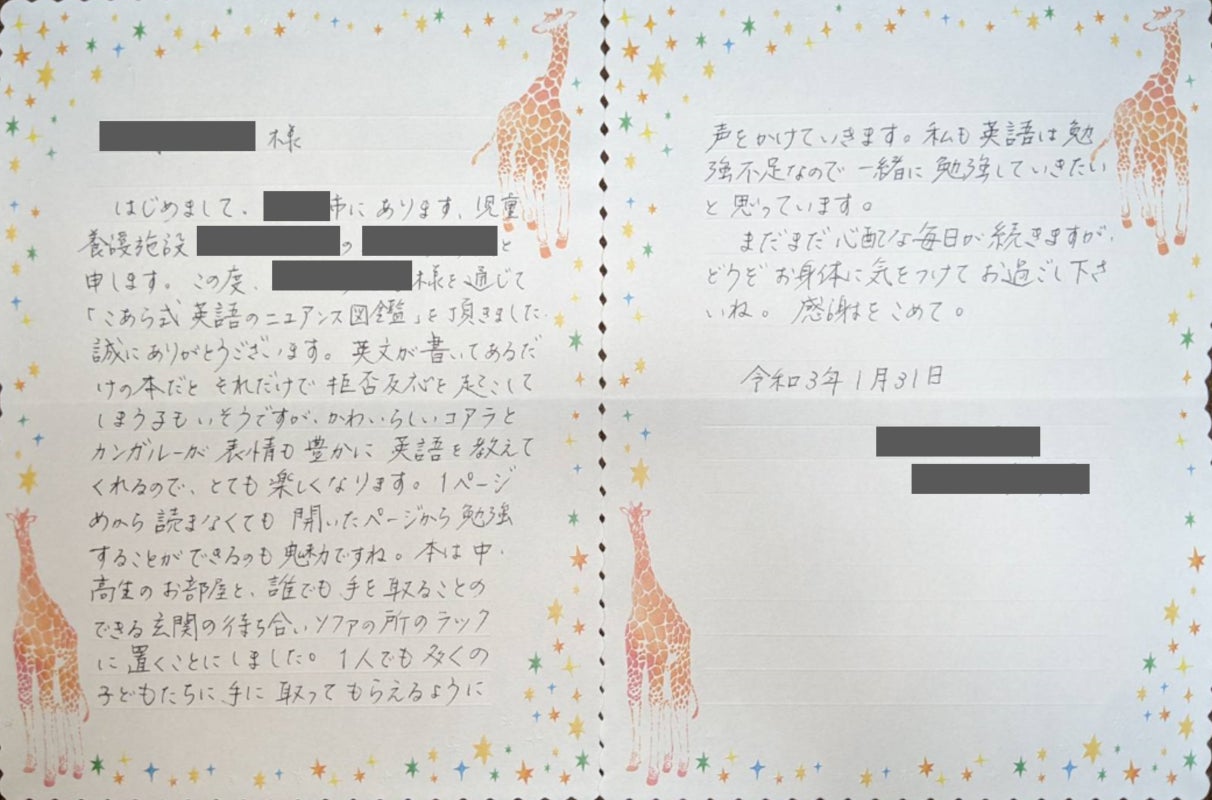 様
はじめまして、市にあります、児童
養護施設 の と
申します。この度、様を通じて
「こあら式 英語のニュアンス図鑑」を頂きました
誠にありがとうございます。英文が書いてあるだ
けの本だと それだけで 拒否反応を 起こして
しまう子もいそうですが、かわいらしいコアラと
カンガルーが 表情も 豊かに 英語を教えて
くれるので、とても 楽しくなります。1ページ
めから 読まなくても 開いたページから 勉強
することができるのも 魅力ですね。本は 中・
高生のお部屋と、誰でも 手を取ることの
できる玄関の待ち合いソファの所のラック
に置くことにしました。1人でも 多くの
子どもたちに 手に 取って もらえるように
声をかけていきます。私も 英語は 勉
強不足なので 一緒に 勉強していきたい
と 思っています。
まだまだ 心配な毎日が 続きますが、
どうぞ お身体に 気をつけて お過ごし下さ
いね。 感謝をこめて。
令和3年 1月31日